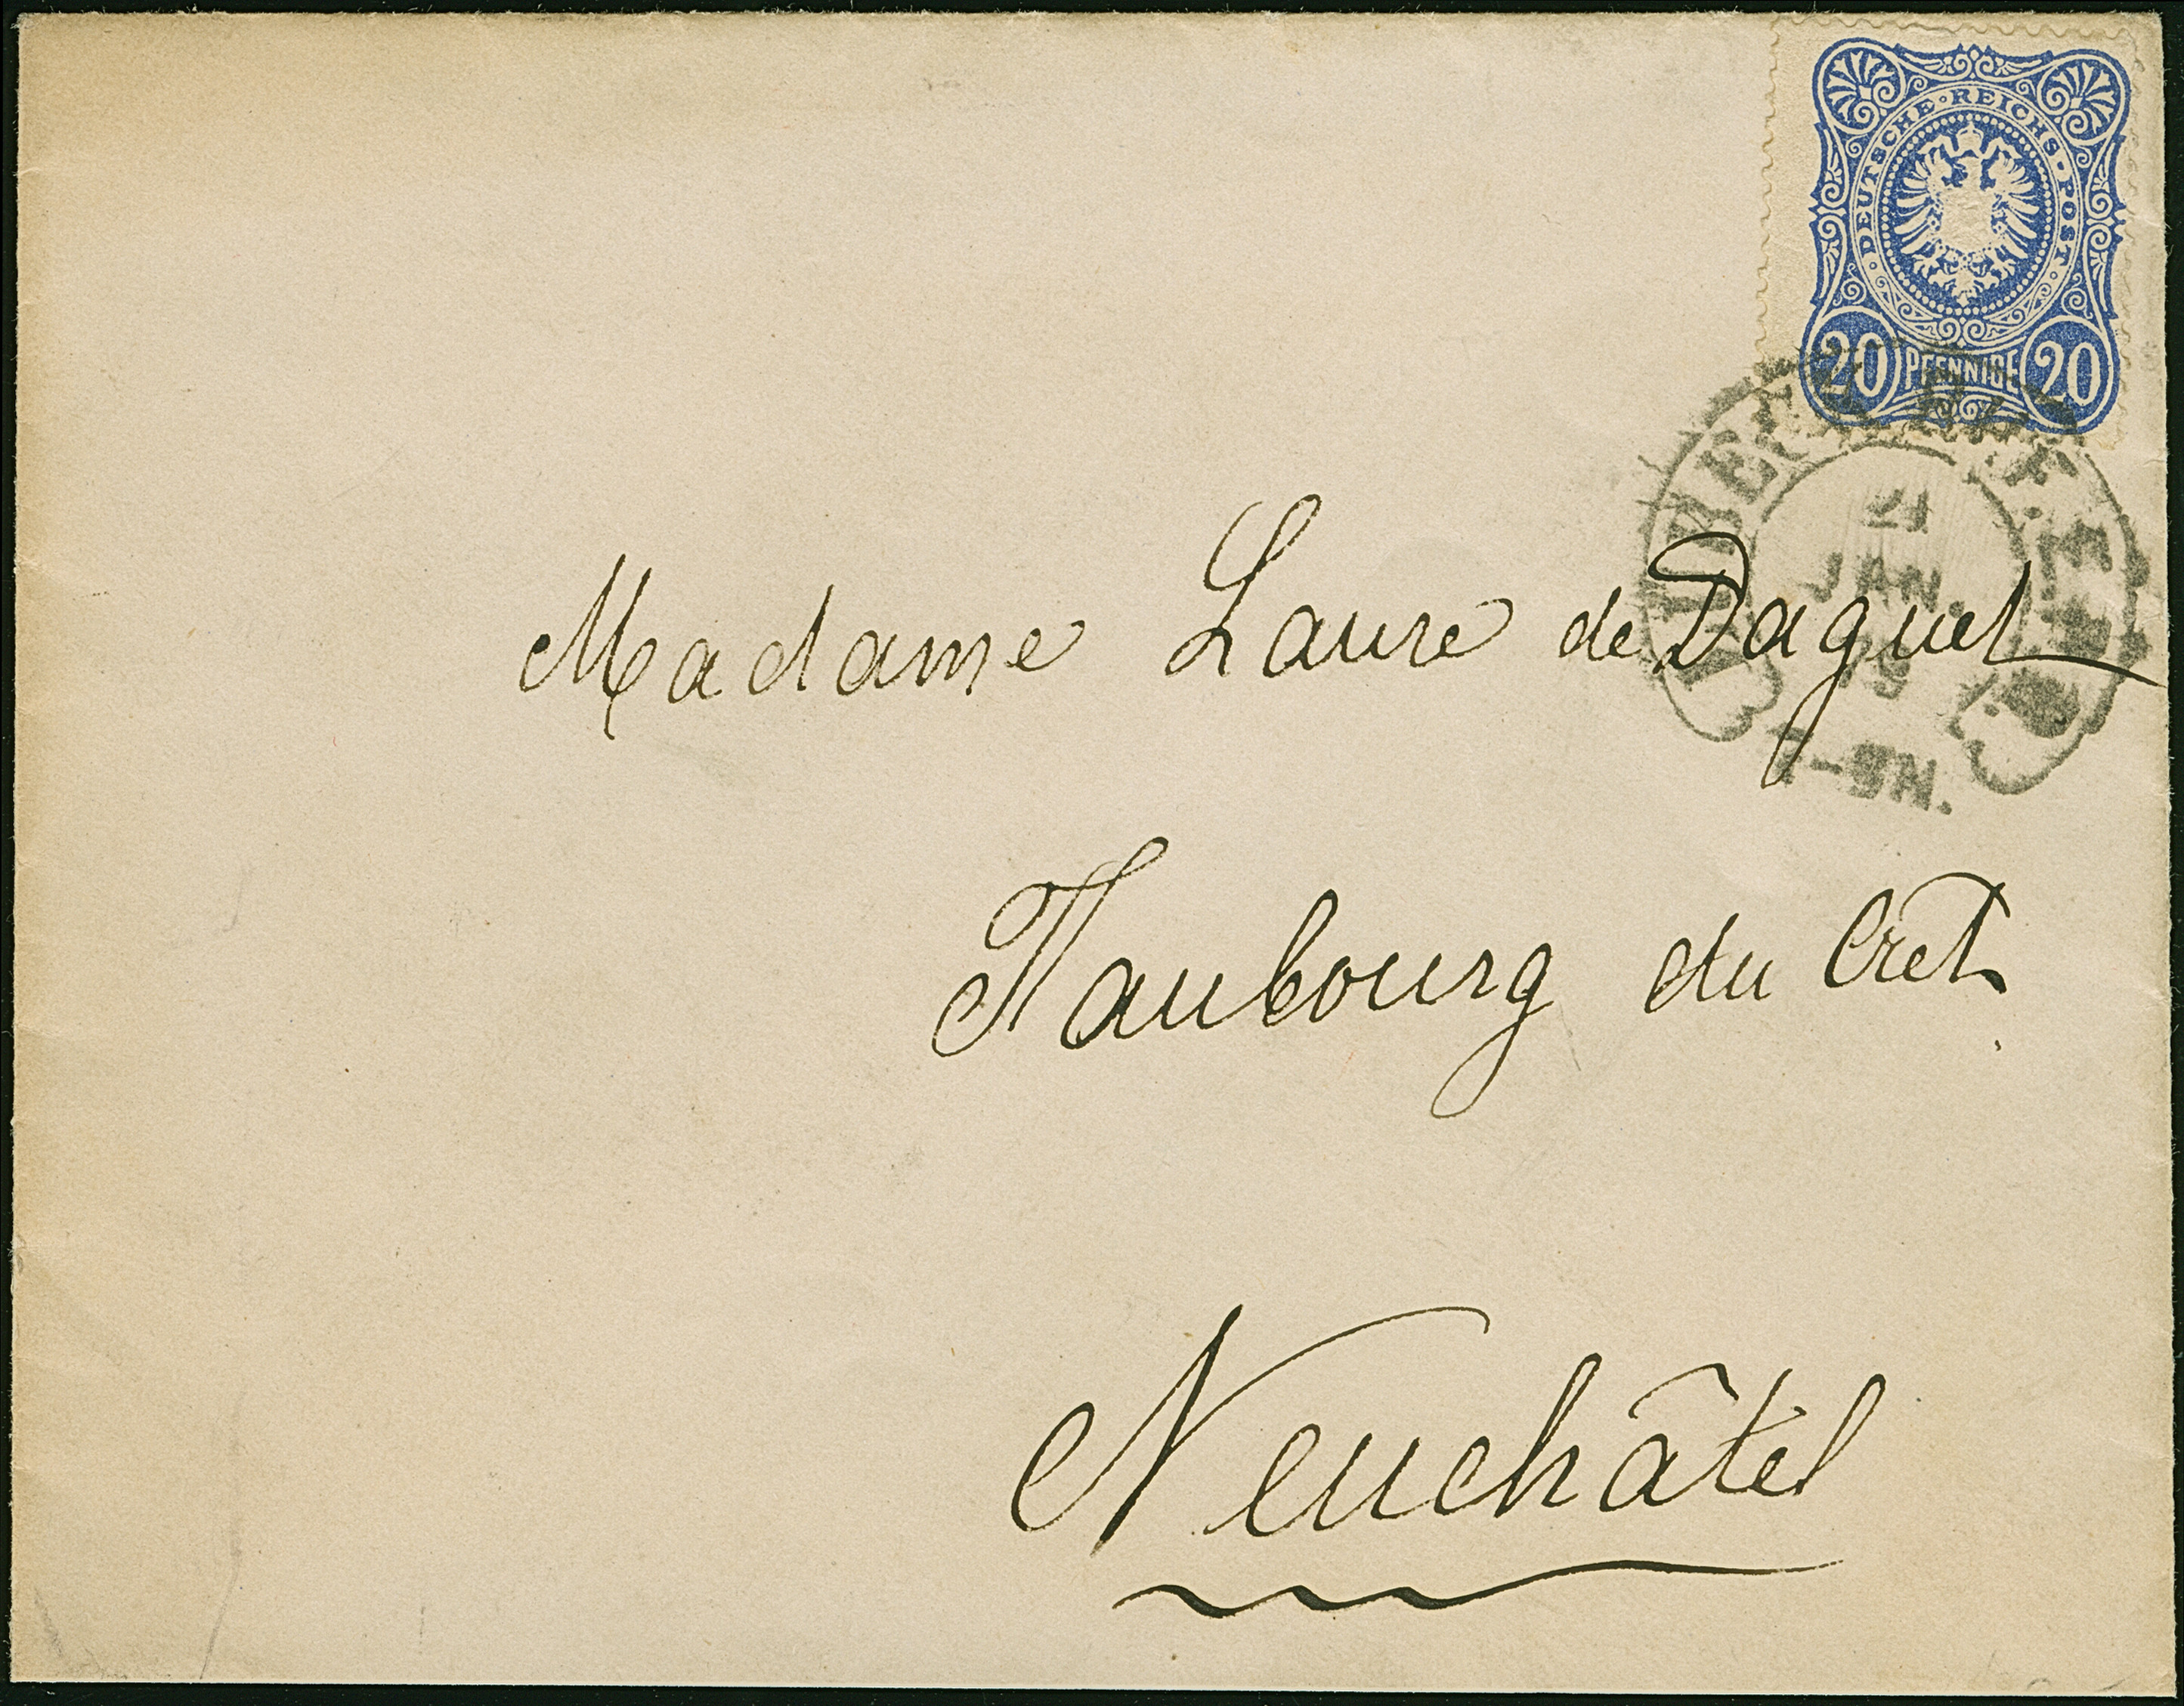 DEUTSCHE · REICHS · POST
20 PFENNIGE 20
21
JAN.
Madame Laure de Daguet
7-9N.
Faubourg du Cret
Neuchâtel